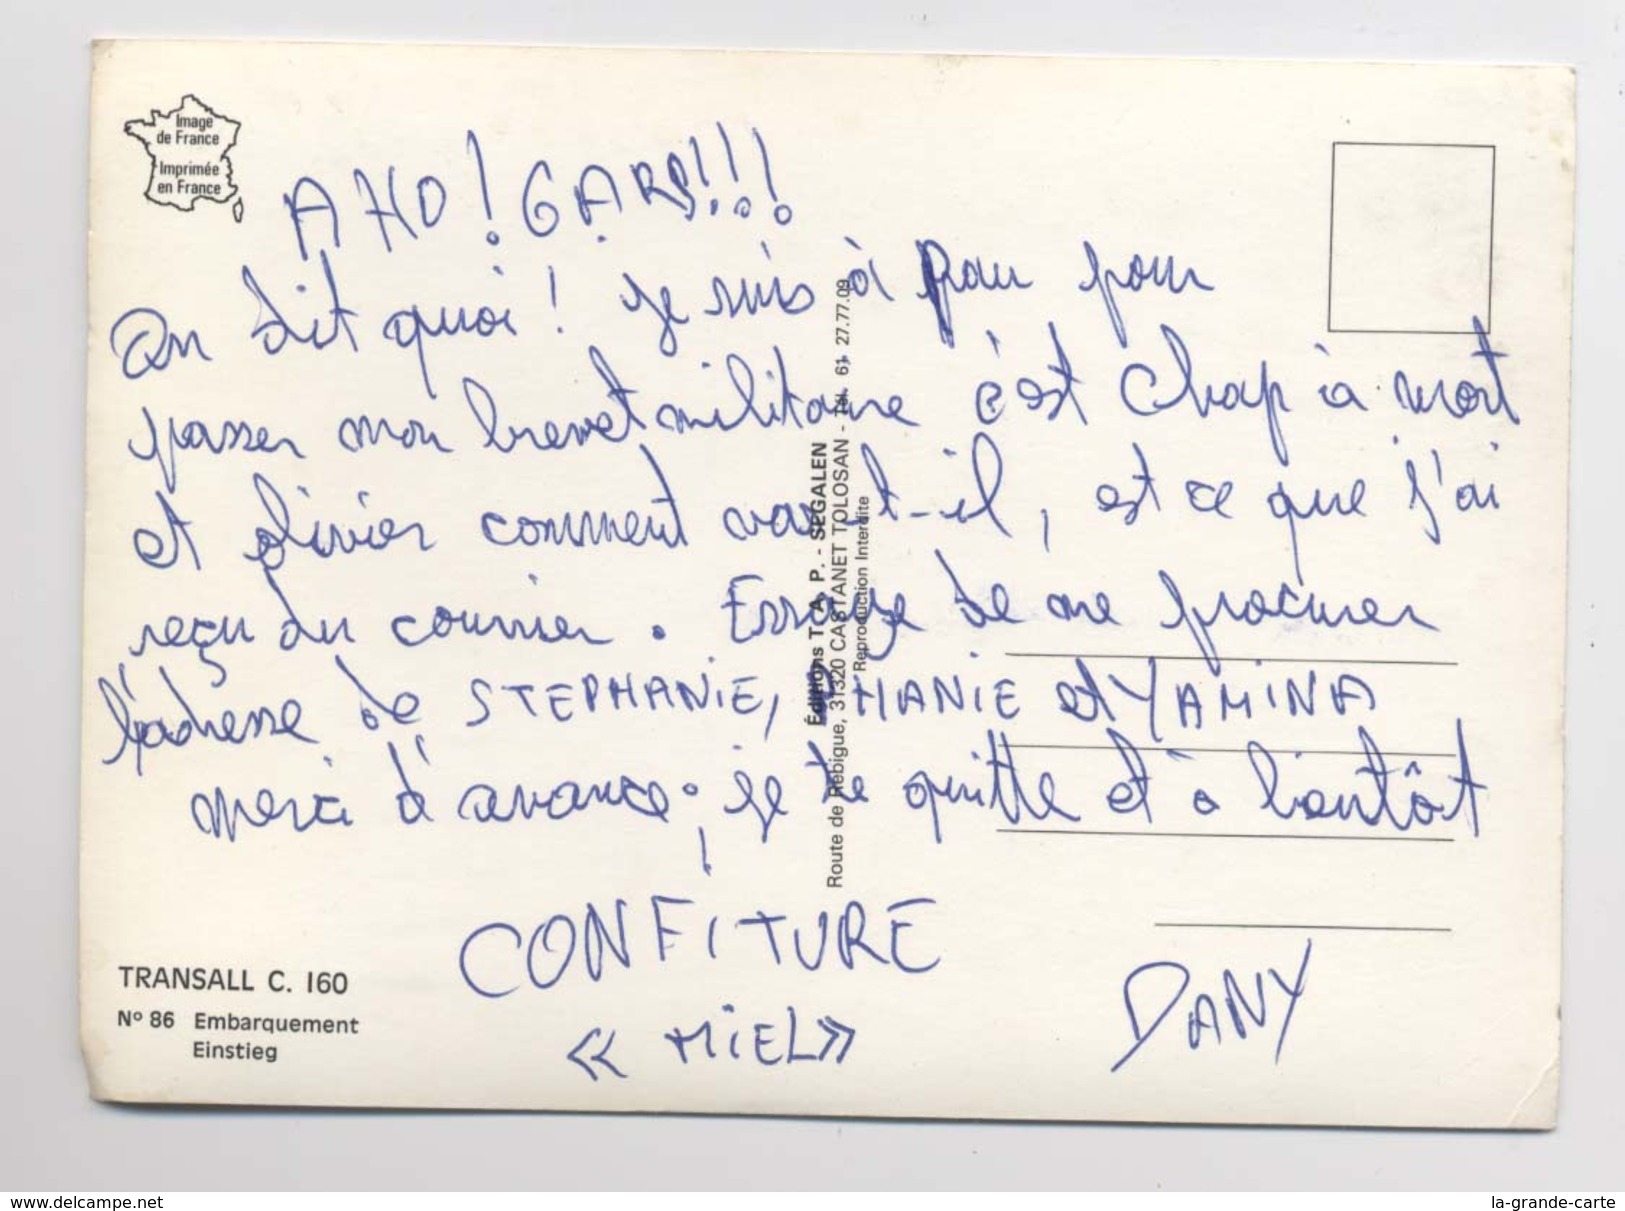 Image
de France
Imprimée
en France
AHO! GARS!!!
On dit quoi! je suis à pau pour
passer mon brevet militaire c'est Chap à mort
et olivier comment vas-t-il, est ce que j'ai
reçu du courrier. Essaye de me procurer
l'adresse de STEPHANIE, PHANIE et YAMINA
merci d'avance; je te quitte et à bientôt
CONFITURE
« MiEL»
DANY
Éditions T. A. P. - SEGALEN
Route de Rebigue, 31320 CASTANET TOLOSAN - Tél. 61. 27.77.09
Reproduction Interdite
TRANSALL C. 160
Nº 86 Embarquement
Einstieg
www.delcampe.net
la-grande-carte